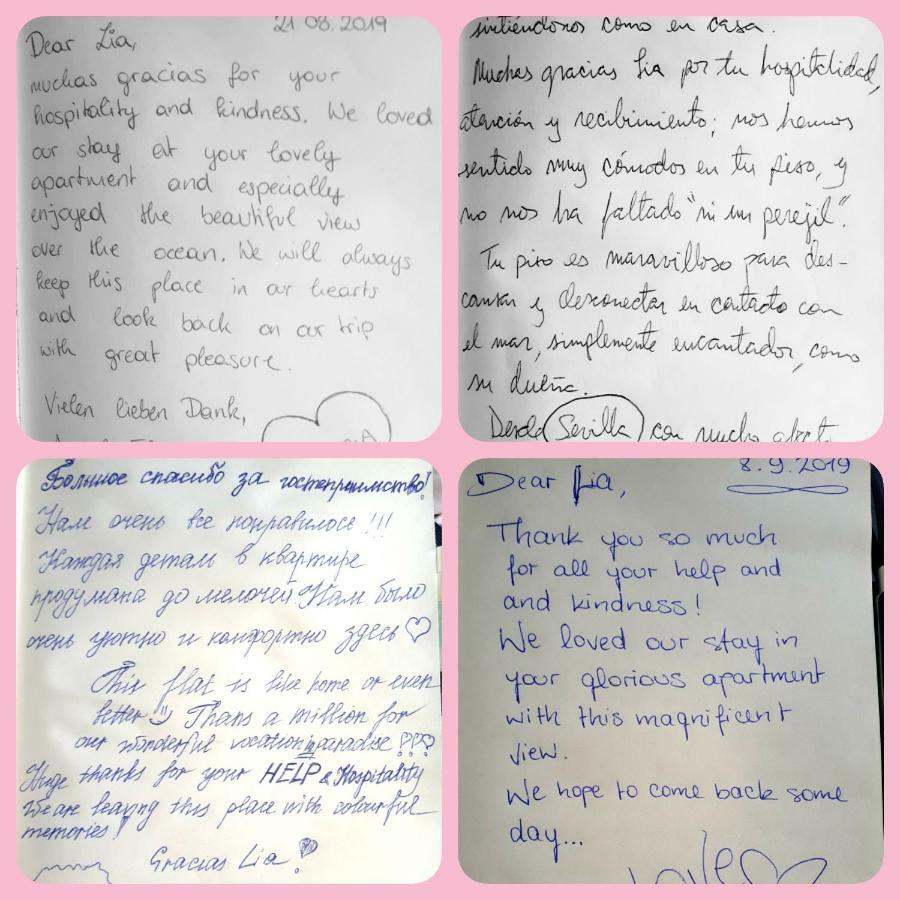 21.08.2019
Dear Lia,
muchas gracias for your
hospitality and kindness. We loved
our stay at your lovely
apartment and especially
enjoyed the beautiful view
over the ocean. We will always
keep this place in our hearts
and look back on our trip
with great pleasure.
Vielen lieben Dank,
sintiéndonos como en casa.
Muchas gracias Lia por tu hospitalidad,
atención y recibimiento; nos hemos
sentido muy cómodos en tu piso, y
no nos ha faltado "ni un perejil".
Tu piso es maravilloso para des-
cansar y desconectar en contacto con
el mar, simplemente encantador, como
su dueña.
Desde Sevilla con mucho afecto
Большое спасибо за гостеприимство!
Нам очень все понравилось!!!
Каждая деталь в квартире
продумана до мелочей! Нам было
очень уютно и комфортно здесь ♡
This flat is like home or even
better Thans a million for
our wonderful vocation in paradise!!!
Huge thanks for your HELP & Hospitality
We are leaving this place with colourful
memories!
Gracias Lia!
8.9.2019
Dear Lia,
Thank you so much
for all your help and
and kindness!
We loved our stay in
your glorious apartment
with this magnificent
view.
We hope to come back some
day...
Love